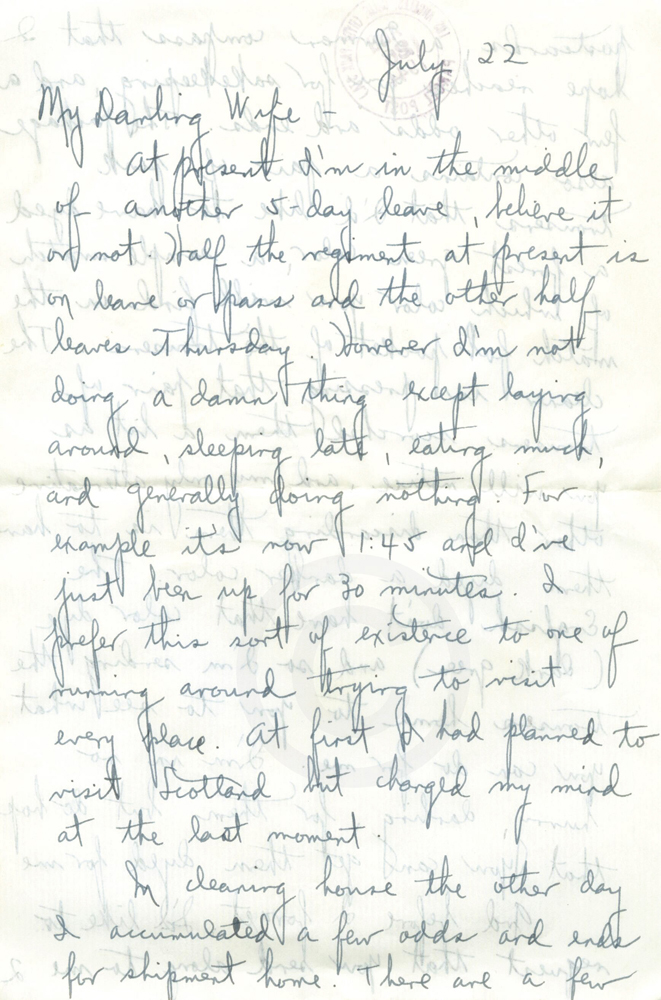 July 22
My Darling Wife -
At present I'm in the middle
of another 5-day leave, believe it
or not. Half the regiment at present is
on leave or pass and the other half
leaves Thursday. However I'm not
doing a damn thing except laying
around, sleeping late, eating much,
and generally doing nothing. For
example it's now 11:45 and I've
just been up for 30 minutes. I
prefer this sort of existence to one of
running around trying to visit
every place. At first I had planned to
visit Scotland but changed my mind
at the last moment.
In cleaning house the other day
I accumulated a few odds and ends
for shipment home. There are a few